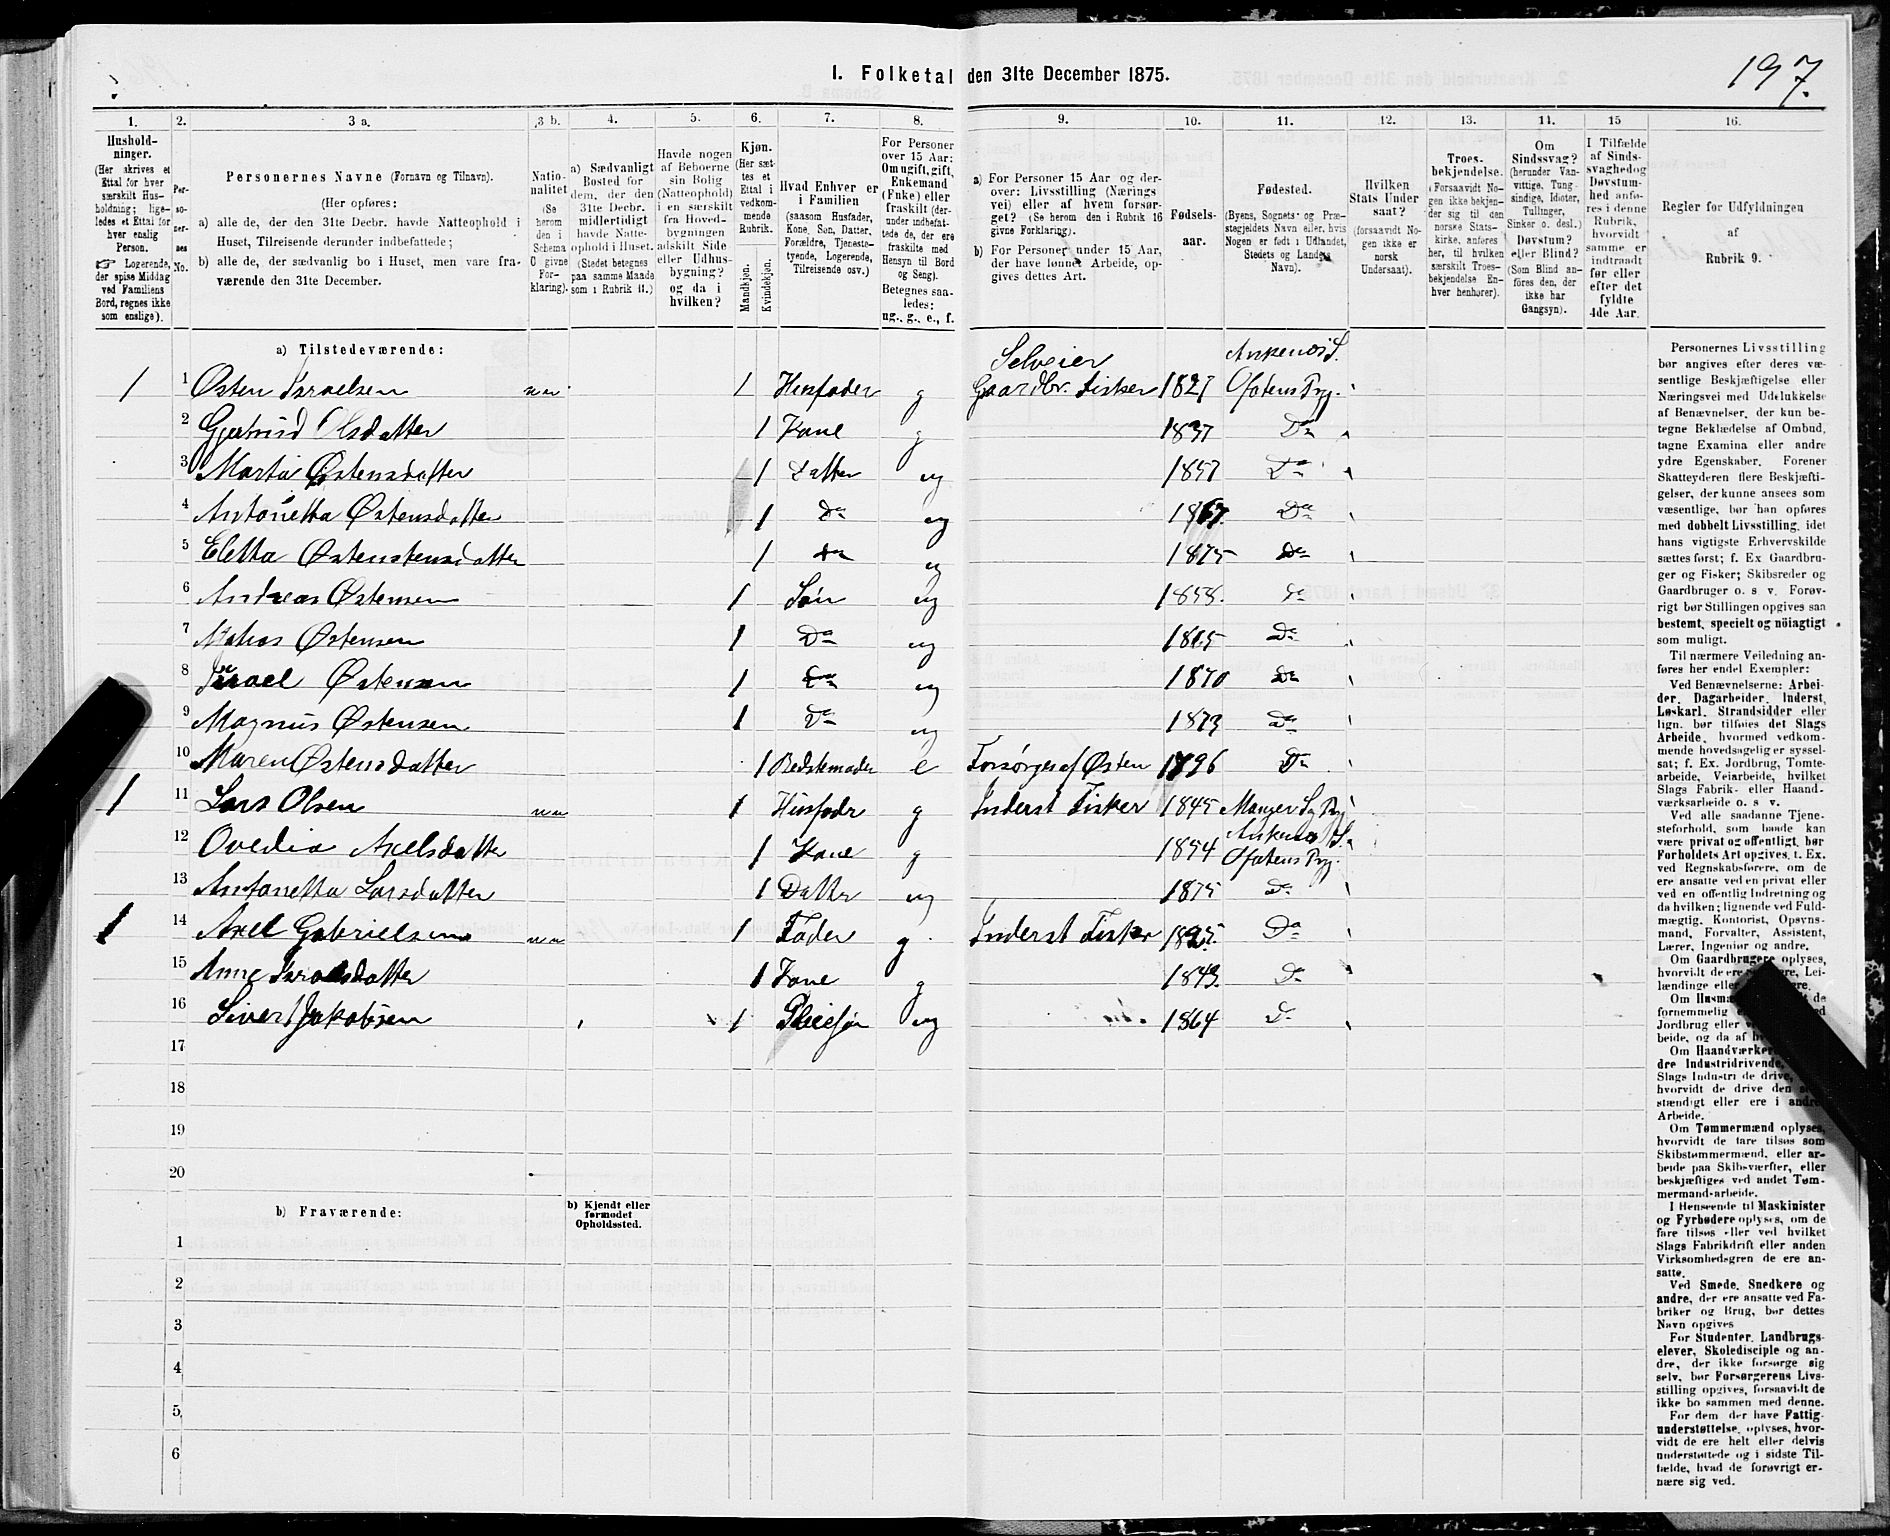 197.
I. Folketal den 31te December 1875.
1. 2. 3 a. 3 b. 4. 5. 6. 7. 8. 9. 10. 11. 12. 13. 14. 15 16.
Hushold-
ninger.
(Her skrives et
Ettal for hver
særskilt Hus-
holdning; lige-
ledes et Ettal for
hver enslig
Person.
☞ Logerende,
der spise Middag
ved Familiens
Bord, regnes ikke
som enslige).
Per-
so-
ner-
nes
No.
Personernes Navne (Fornavn og Tilnavn).
(Her opføres:
a) alle de, der den 31te Decbr. havde Natteophold i
Huset, Tilreisende derunder indbefattede;
b) alle de, der sædvanlig bo i Huset, men vare fra-
værende den 31te December.
Natio-
nalitet
(Se
herom
den i
Schema
C givne
For-
klaring).
a) Sædvanligt
Bosted for
dem, der den
31te Decbr.
midlertidigt
havde Natte-
ophold i Huset.
(Stedet betegnes
paa samme Maade
som i Rubrik 11.)
Havde nogen
af Beboerne
sin Bolig
(Natteophold)
i en særskilt
fra Hoved-
bygningen
adskilt Side
eller Udhus-
bygning?
og da i
hvilken?
Kjøn.
(Her sæt-
tes et
Ettal i
vedkom-
mende
Rubrik.
Mandkjøn.
Kvindekjøn.
Hvad Enhver er
i Familien
(saasom Husfader,
Kone, Søn, Datter,
Forældre, Tjeneste-
tyende, Logerende,
Tilreisende osv.)
For Personer
over 15 Aar:
Om ugift, gift,
Enkemand
(Enke) eller
fraskilt (der-
under indbefat-
tede de, der ere
fraskilte med
Hensyn til Bord
og Seng).
Betegnes saa-
ledes:
ug., g., e., f.
a) For Personer 15 Aar og der-
over: Livsstilling (Nærings
vei) eller af hvem forsør-
get? (Se herom den i Rubrik 16
givne Forklaring).
b) For Personer under 15 Aar,
der have lønnet Arbeide, op-
gives dettes Art.
Fødsels-
aar.
Fødested.
(Byens, Sognets og Præ-
stegjeldets Navn eller, hvis
Nogen er født i Udlandet,
Stedets og Landets
Navn).
Hvilken
Stats Under
saat?
(forsaavidt No-
gen ikke er
norsk
Undersaat).
Troes-
bekjendelse.
(Forsaavidt No-
gen ikke bekjen-
der sig til den
norske Stats-
kirke, anføres
her, til hvilken
særskilt Troes-
bekjendelse En-
hver henhører).
Om
Sindssvag?
(herunder Van-
vittige, Tung-
sindige, Idioter,
Tullinger,
Sinker o. desl.)
Døvstum?
eller Blind?
(Som Blind an-
føres den, der
ikke har
Gangsyn).
I Tilfælde
af Sinds-
svaghed og
Døvstum-
hed anfø-
res i denne
Rubrik,
hvorvidt
samme er
indtraadt
før eller
efter det
fyldte
4de Aar.
Regler for Udfyldningen
af
Rubrik 9.
a) Tilstedeværende:
1 1 Østen Israelsen nn 1 Husfader g Selveier Gaardbr. Fisker 1827 Ankenes S. Ofotens Prg.
2 Gjertrud Olsdatter 1 Kone g 1837 Do
3 Marta Østensdatter 1 Datter ug 1857 Do
4 Antonetta Østensdatter 1 Do ug 1867. Do
5 Eletta Østenstensdatter 1 Do ug 1875 Do
6 Andreas Østensen 1 Søn ug 1858. Do
7 Matias Østensen 1 Do ug 1865 Do
8 Israel Østensen 1 Do ug 1870 Do
9 Magnus Østensen 1 Do ug 1873 Do
10 Maren Østensdatter 1 Bedstemoder e Forsørges af Østen 1796 Do
1 11 Lars Olsen nn 1 Husfader g Inderst Fisker 1845 Manger S. Prg
12 Ovedia Axelsdatter 1 Kone g 1854 Ankenes S. Ofotens Prg.
13 Antonetta Larsdatter 1 Datter ug 1875 Do
1 14 Axel Gabrielsen nn 1 Fader g. Inderst Fisker 1825. Do
15 Anne Israelsdatter 1 Kone g 1843. Do
16 Sivert Jakobsen 1 Pleiesøn ug 1864 Do
17
18
19
20
b) Fraværende:
b) Kjendt eller
formodet
Opholdssted.
1
2
3
4
5
6
Personernes Livsstilling
bør angives efter deres væ-
sentlige Beskjæftigelse eller
Næringsvei med Udelukkelse
af Benævnelser, der kun be-
tegne Beklædelse af Ombud,
tagne Examina eller andre
ydre Egenskaber. Forener
Skatteyderen flere Beskjæfti-
gelser, der kunne ansees som
væsentlige, bør han opføres
med dobbelt Livsstilling, idet
hans vigtigste Erhvervskilde
sættes først; f. Ex Gaardbru-
ger og Fisker; Skibsreder og
Gaardbruger o. s v. Forøv-
rigt bør Stillingen opgives saa
bestemt, specielt og nöiagtigt
som muligt.
Til nærmere Veiledning an-
føres her endel Exempler:
Ved Benævnelserne: Arbei-
der, Dagarbeider, Inderst,
Løskarl, Strandsidder eller
lign. bør tilføies det Slags
Arbeide, hvormed vedkom-
mende hovedsagelig er syssel-
sat; f. Ex. Jordbrug, Tomte-
arbeide, Veiarbeide, hvilket
Slags Fabrik- eller Haand-
værksarbeide o. s v.
Ved alle saadanne Tjene-
steforhold, som baade kan
være privat og offentligt, bør
Forholdets Art opgives, t. Ex.
ved Regnskabsførere, om de
ere ansatte ved en privat eller
ved en offentlig Indretning og
da hvilken; lignende ved Fuld-
mægtig, Kontorist, Opsyns-
mand, Forvalter, Assistent,
Lærer, Ingeniør og andre.
Om Gaardbrugere oplyses,
hvorvidt de ere Lei-
lændinge eller
Om Husmæ de
fornemmelig
Jordbrug eller
beide, og da af
Om Haandværkere
dre Industridrivende,
Slags Industri de drive,
hvorvidt de drive den
stændigt eller ere i andres
Arbeide.
Om Tømmermænd oplyses,
hvorvidt de fare tilsøs som
Skibstømmermænd, eller ar-
beide paa Skibsværfter, eller
beskjæftiges ved andet Tøm-
mermand-arbeide.
I Henseende til Maskinister
og Fyrbødere oplyses, om de
fare tilsøs eller ved hvilket
Slags Fabrikdrift eller anden
Virksomhedsgren de ere an-
satte.
Ved Smede, Snedkere og
andre, der ere ansatte ved Fa-
briker og Brug, bør dettes
Navn opgives
For Studenter, Landbrugs-
elever, Skoledisciple og an-
dre, der ikke forsørge sig
selv, bør Forsørgerens Livs-
stilling opgives, forsaavidt de
ikke bo sammen med denne.
For dem der have Fattig-
understøttelse, oplyses, hvor-
vidt de ere helt eller delvis
understøttede og i sidste Til-
fælde, hvad de forøvrigt er-
nære sig ved.